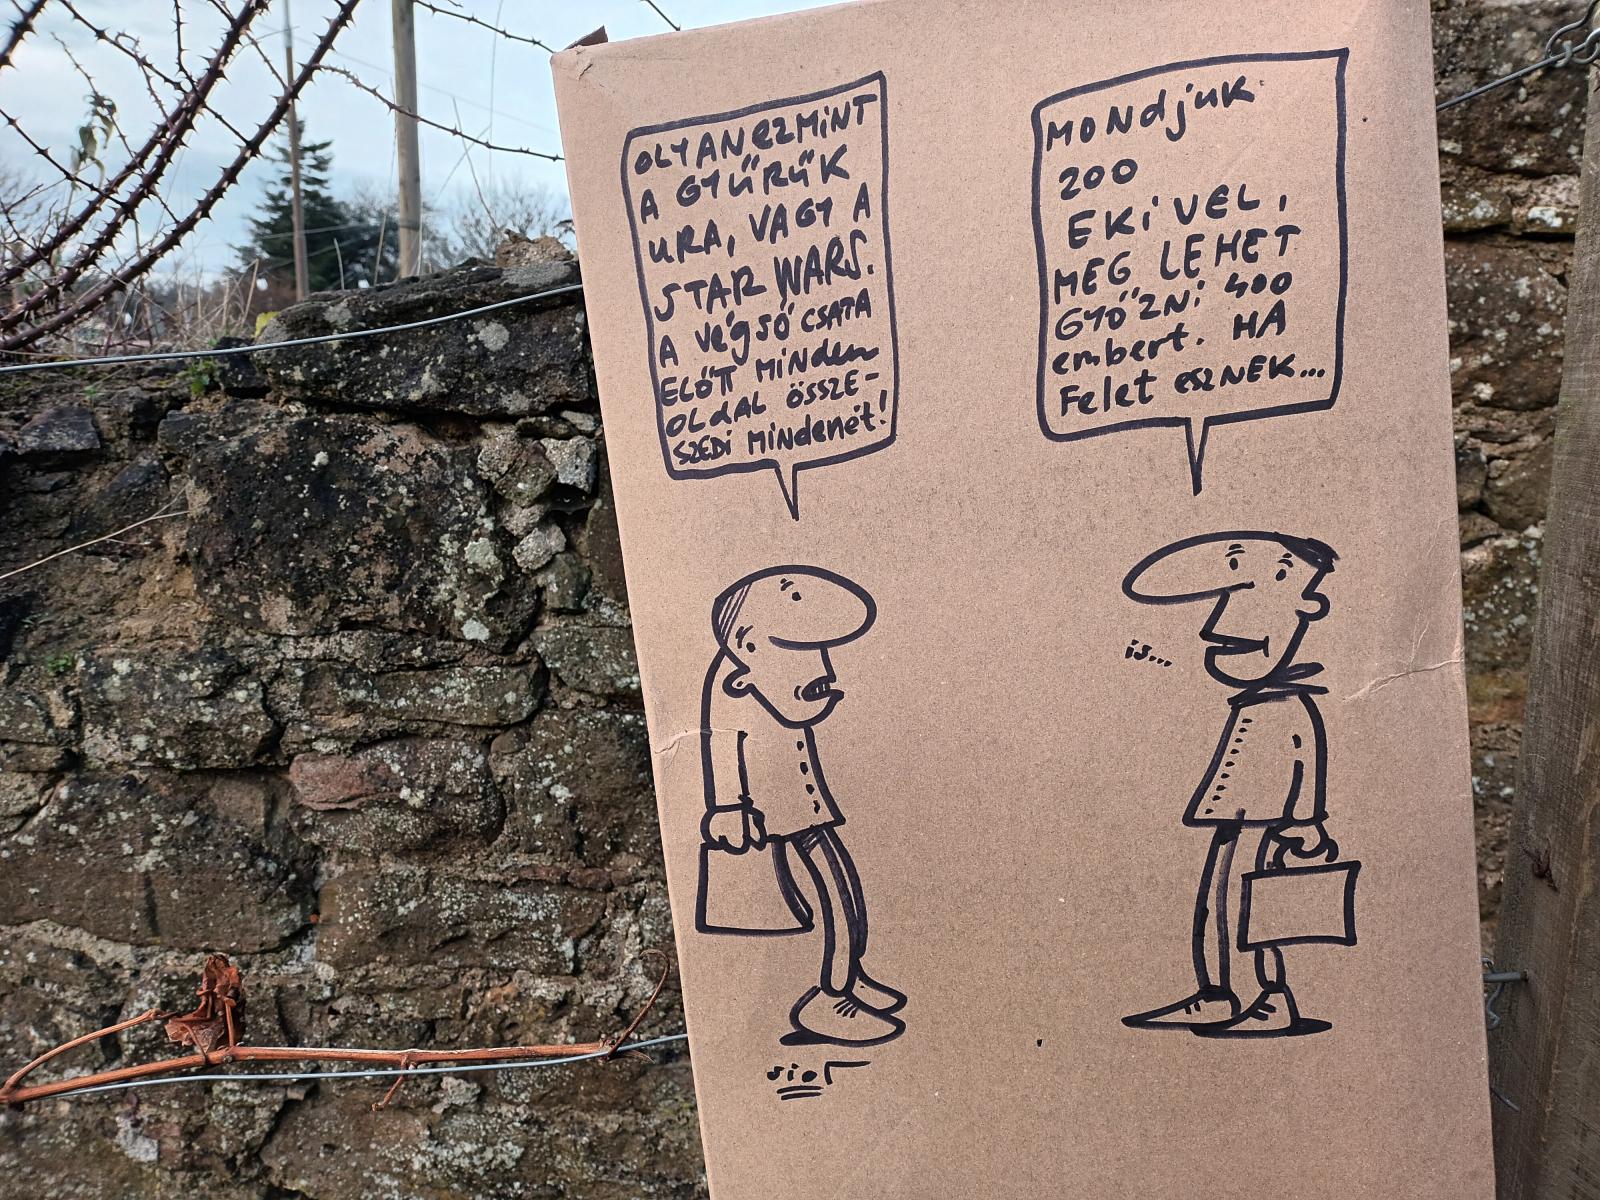 OLYAN EZ MINT
A GYŰRŰK
URA, VAGY A
STAR WARS.
A VégSő CSATA
ELŐTT MINden
OLdAL ÖSSZE-
SZEDi MINdenét!
MONdjuk
200
EKIVEL,
MEG LEHET
GYŐZNi 400
embert. HA
Felet esZNEK...
is...